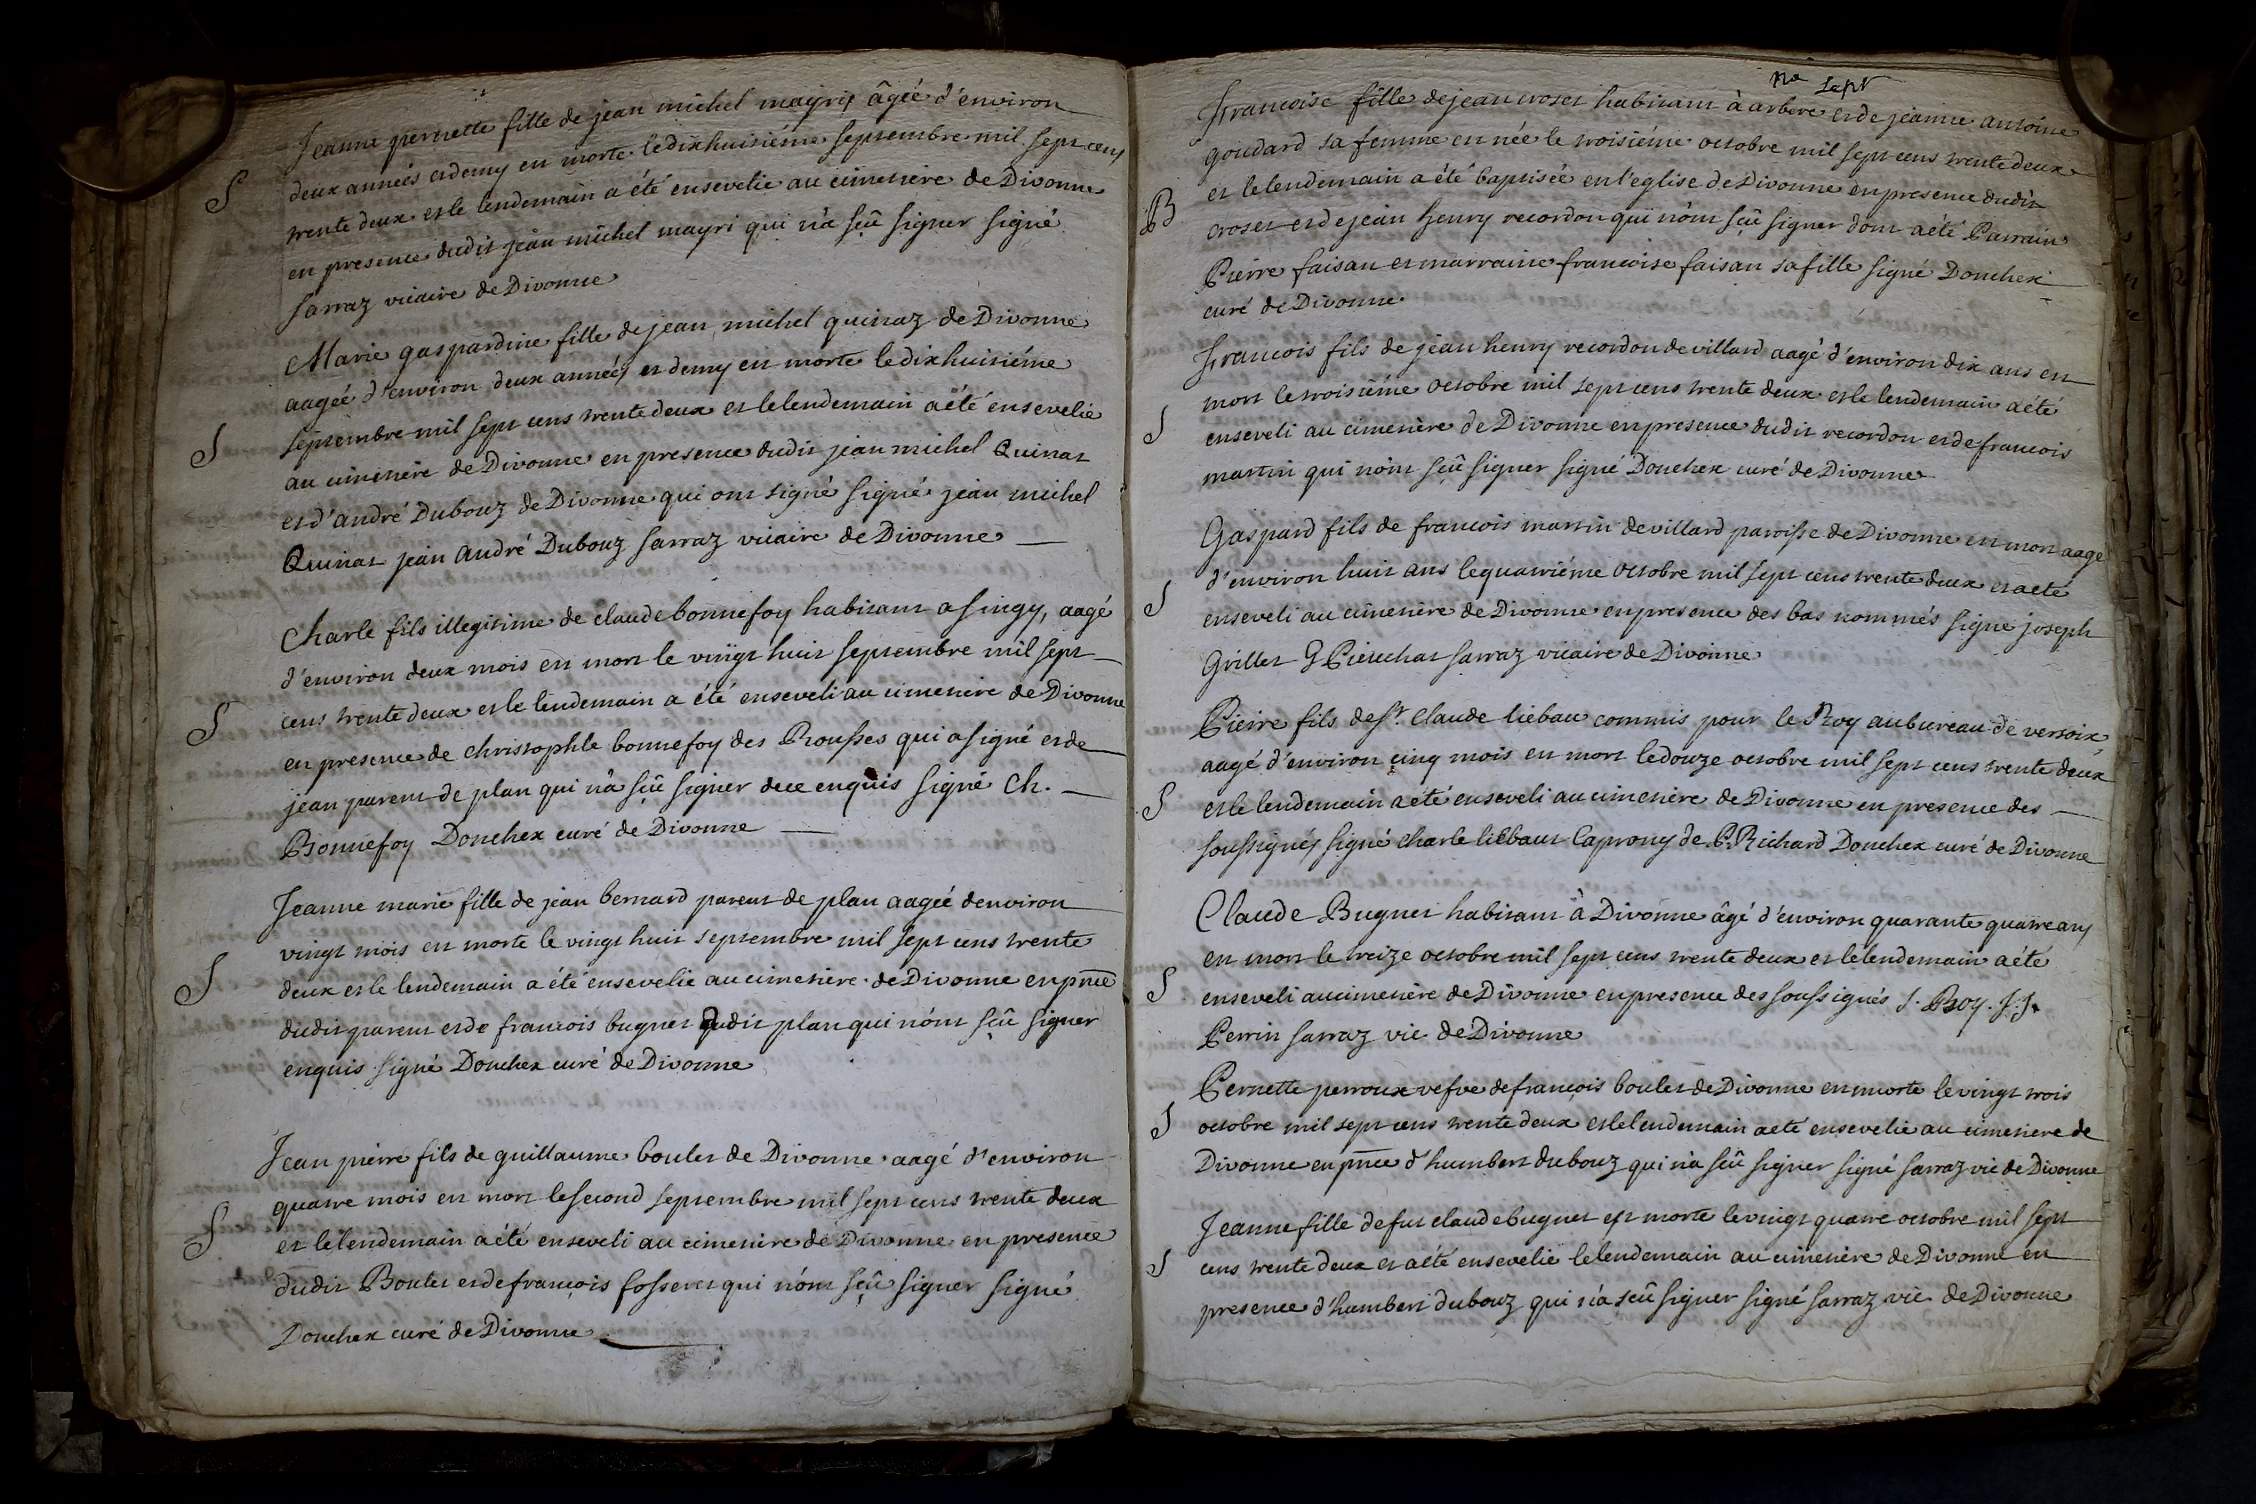 Jeanne pernette fille de jean michel mayris âgée d'environ
S
deux annees et demy est morte le dixhuitiéme septembre mil sept cens
trente deux et le lendemain a été ensevelie au cimetiére de Divonne
en presence dudit jean michel mayri qui n'a sçû signer signé
sarraz vicaire de Divonne
Marie gaspardine fille de jean michel quinaz de Divonne
aagée d'environ deux années et demy est morte le dixhuitiéme
S
septembre mil sept cens trente deux et le lendemain a été ensevelie
au cimetiére de Divonne en presence dudit jean michel Quinat
et d'andré Dubouz de Divonne qui ont signé signé jean michel
Quinat jean andré Dubouz sarraz vicaire de Divonne
Charle fils illegitime de claude bonnefoy habitant a singy, aagé
d'environ deux mois est mort le vingt huit septembre mil sept
S
cens trente deux et le lendemain a été enseveli au cimetiére de Divonne
en presence de christophle bonnefoy des Rousses qui a signé et de
jean parent de plan qui n'a sçû signer de ce enquis signé Ch.
Bonnefoy Douchex curé de Divonne
Jeanne marie fille de jean bernard parent de plan aagée denviron
vingt mois est morte le vingt huit septembre mil sept cens trente
S
deux et le lendemain a été ensevelie au cimetiére de Divonne en pñce
dudit parent et de francois bugnet dudit plan qui n'ont sçû signer
enquis signé Douchex curé de Divonne
Jean pierre fils de guillaume boulet de Divonne aagé d'environ
quatre mois est mort le second septembre mil sept cens trente deux
S
et le lendemain a été enseveli au cimetiére de Divonne en presence
dudit Boulet et de françois fosseret qui n'ont sçû signer signé
Douchex curé de Divonne
na sept
Francoise fille de jean croset habitant à arbere et de jeanne antoine
goudard sa femme est née le troisiéme octobre mil sept cens trente deux
et le lendemain a été baptisée en l'eglise de Divonne en presence dudit
B
croset et de jean henry recordon qui n'ont sçû signer dont a été Parrain
Pierre faisan et marraine francoise faisan sa fille signé Douchex
curé de Divonne
Francois fils de jean henry recordon de villard aagé d'environ dix ans est
mort le troisiéme octobre mil sept cens trente deux et le lendemain a été
S
enseveli au cimetiére de Divonne en presence dudit recordon et de francois
martin qui n'ont sçû signer signé Douchex curé de Divonne
Gaspard fils de francois martin de villard paroisse de Divonne est mort aagé
d'environ huit ans le quatriéme octobre mil sept cens trente deux et a eté
S
enseveli au cimetiére de Divonne en presence des bas nommés signé joseph
Grillet G Pieuchat sarraz vicaire de Divonne
Pierre fils de sr. Claude liebau commis pour le Roy au bureau de versoix
aagé d'environ cinq mois est mort le douze octobre mil sept cens trente deux
S
et le lendemain a été enseveli au cimetiére de Divonne en presence des
soussignés signé charle liébaut Caprony de P. Richard Douchex curé de Divonne
Claude Bugnet habitant à Divonne âgé d'environ quarante quatre ans
est mort le treize octobre mil sept cens trente deux et le lendemain a été
S
enseveli au cimetiére de Divonne en presence des soussignés J. Roy. J. J.
Perrin sarraz vic de Divonne
Pernette perroux vefve de françois boulet de Divonne est morte le vingt trois
S
octobre mil sept cens trente deux et le lendemain a eté ensevelie au cimetiere de
Divonne en pñce d'humbert dubouz qui n'a sçû signer signé sarraz vic de Divonne
Jeanne fille de fut claude bugnet est morte le vingt quatre octobre mil sept
S
cens trente deux et a eté ensevelie le lendemain au cimetiére de Divonne en
presence d'humbert dubouz qui n'a sçû signer signé sarraz vic de Divonne